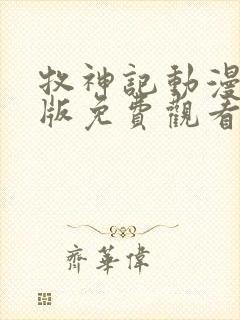 牧神記動漫
版免費觀看
齊華偉